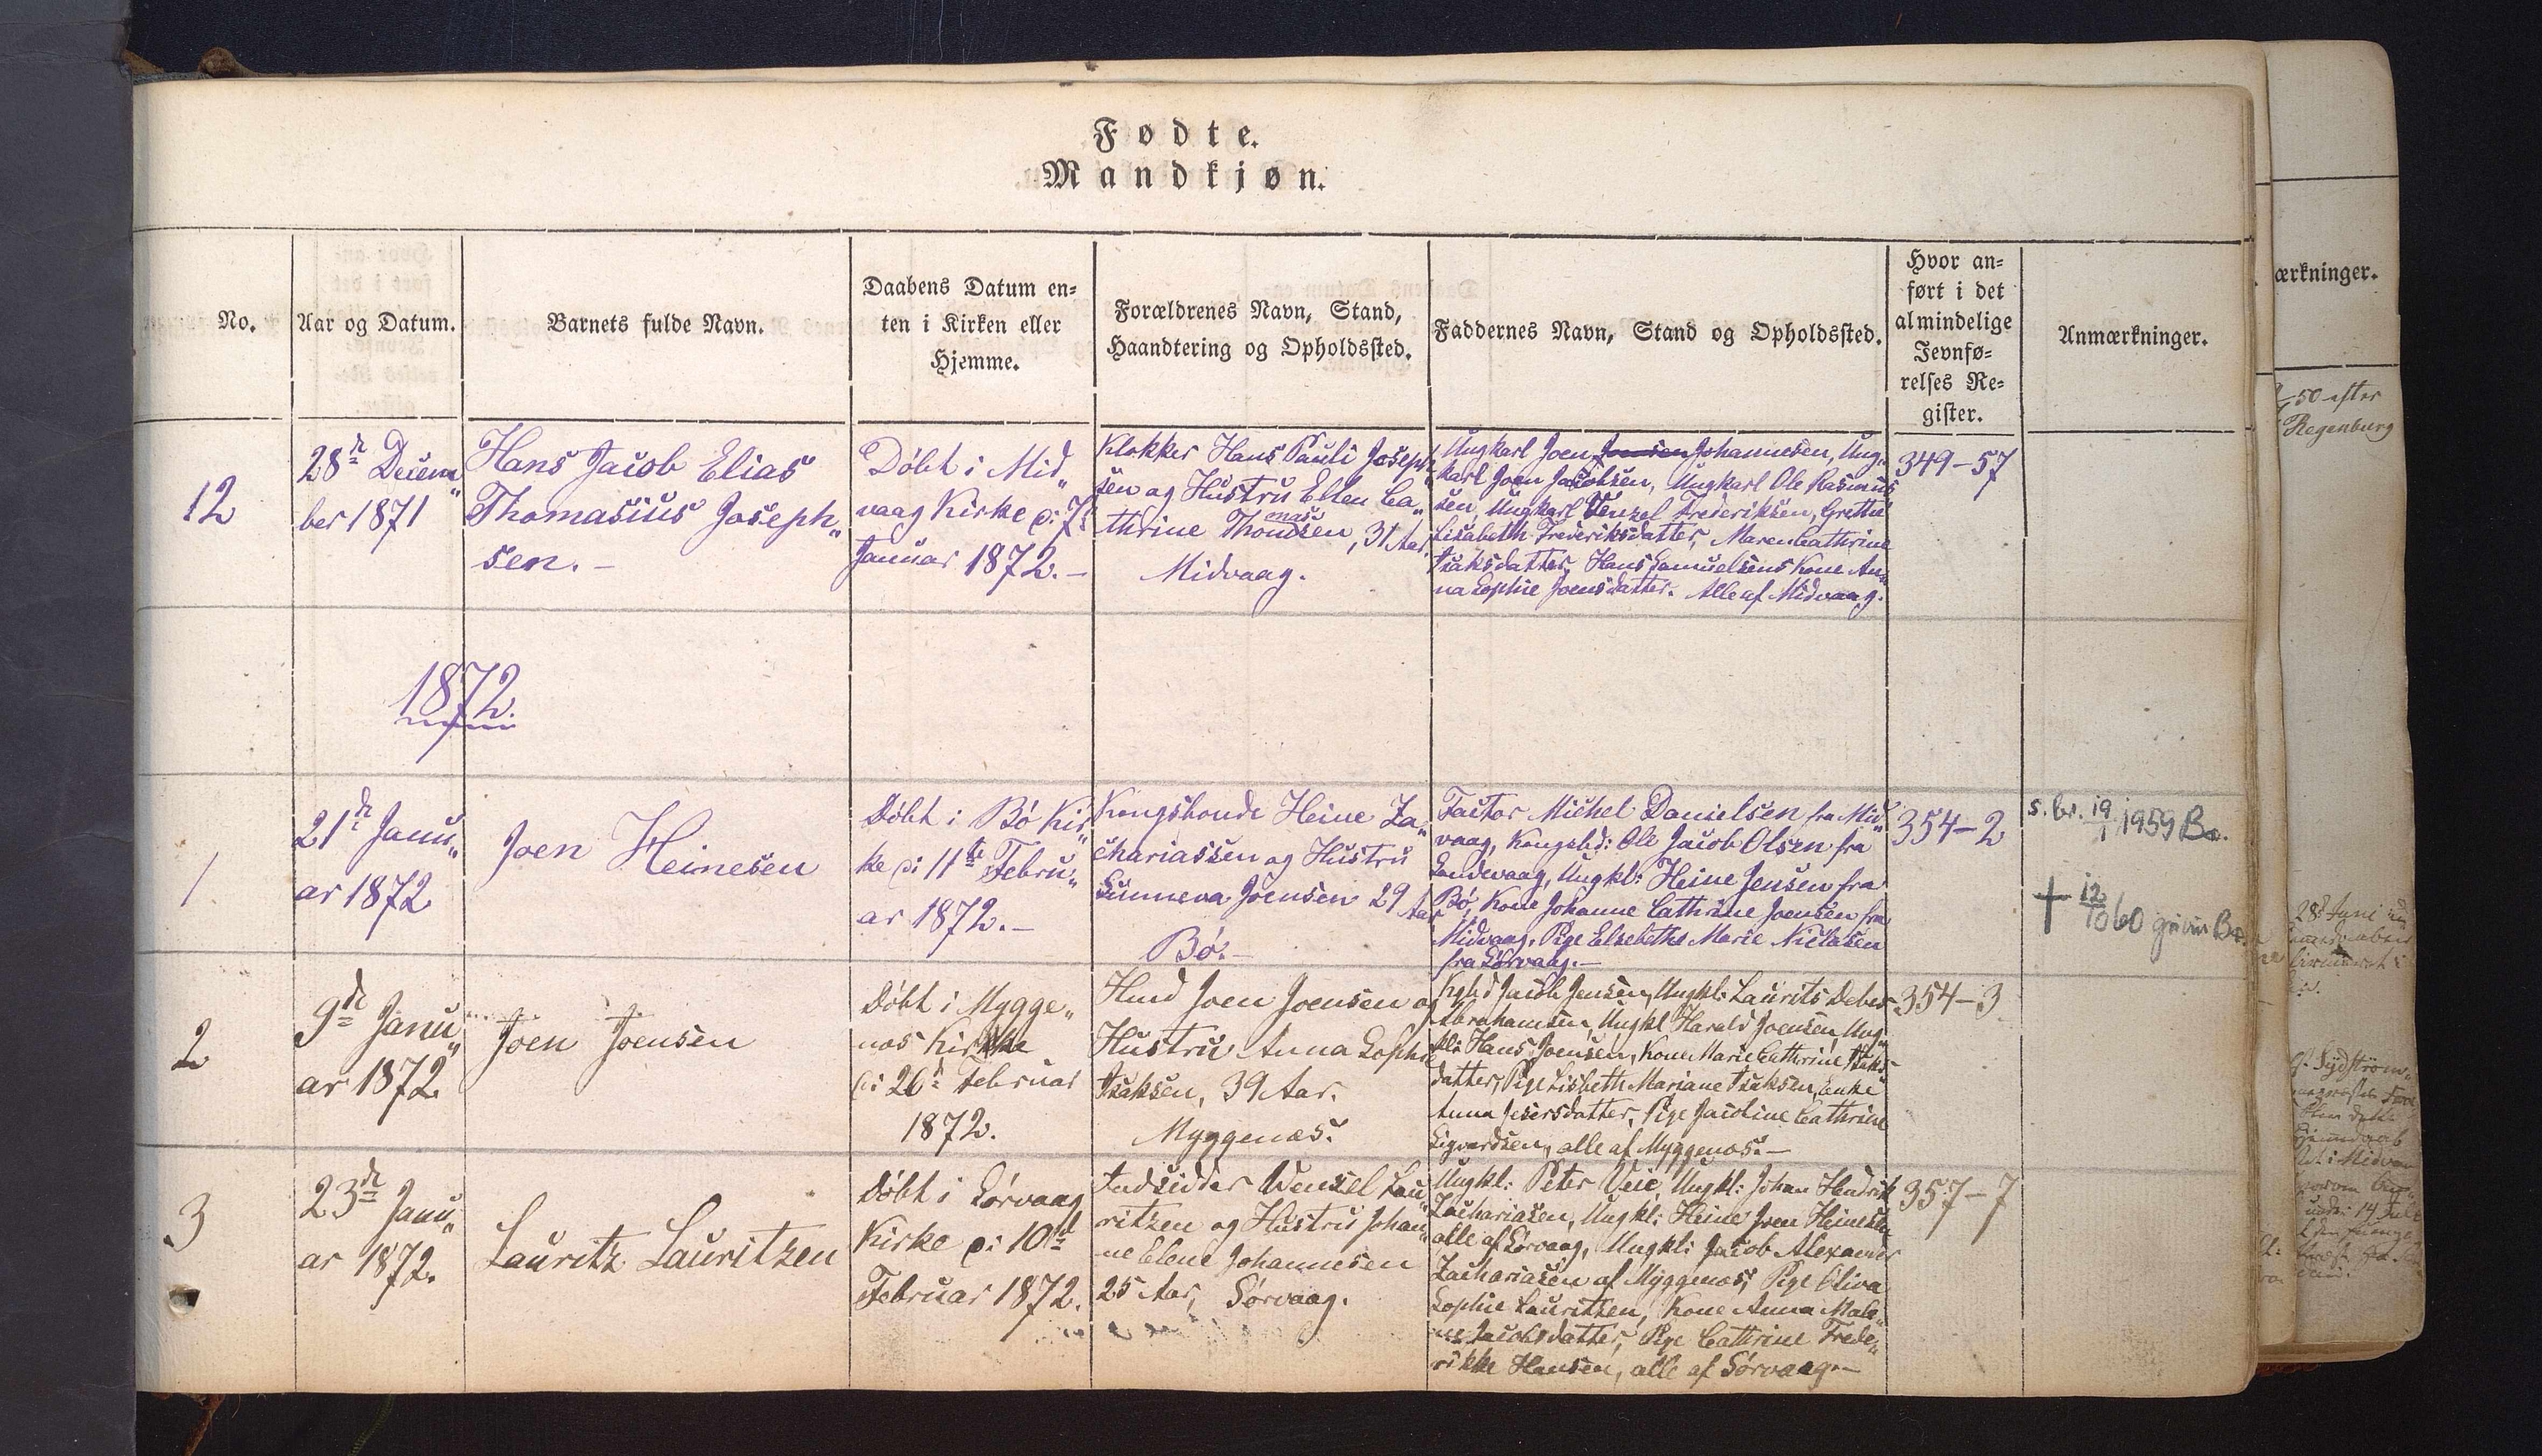 Fødte.
Mandkjøn.
No.
Aar og Datum.
Barnets fulde Navn.
Daabens Datum en=
ten i Kirken eller
Hjemme.
Forældrenes Navn, Stand,
Haandtering og Opholdssted.
Faddernes Navn, Stand og Opholdssted.
Hvor an=
ført i det
almindelige
Jevnfø=
relses Re=
gister.
Anmærkninger.
12
28de Decem„
ber 1871
Hans Jacob Elias
Thomasius Joseph„
sen.-
Döbt i Mid„
vaag Kirke
Januar 1872.-
Klokker Hans Pauli Joseph„
sen og Hustru Ellen Ca„
thrine Thomassen, 31 Aar.
Midvaag.
Ungkarl Joen Joensen Johannesen, Ung„
karl Joen Jacobsen, Ungkarl Ole Rasmus
sen, Ungkarl Venzel Frederiksen, Grethe
Lisabeth Frederiksdatter, Maren Cathrine
Isaksdatter, Hans Samuelsens Kone An„
na Sophie Joensdatter. Alle af Midvaag.
349-57
1872.
1
21de Janu„
ar 1872
Joen Heinesen
Döbt i Bö Kir„
ke 11te Febru„
ar 1872.-
Kongsbonde Heine Za„
chariassen og Hustru
Sunneva Joensen 29 Aar
Bö.-
Factor Michel Danielsen fra Mid„
vaag, Kongsbd: Ole Jacob Olsen fra
Sandevaag, Ungkl: Heine Jensen fra
Bö, Kone Johanne Cathrine Joensen fra
Midvaag, Pige Elsebeths Marie Niclasen
fra Sörvaag.-
354-2
s. br. 19/1 1959 Bø.
† 12/10 60 Bø.
2
9de Janu„
ar 1872.
Joen Joensen
Döbt i Mygge„
nos Kirke
26de Februar
1872.
Hmd Joen Joensen og
Hustru Anna Sophie
Isaksen, 39 Aar.
Myggenæs.
Kgbd Jacob Jensen, Ungkl: Laurits Debes
Abrahamsen, Ungkl Harald Joensen, Ung„
kl: Hans Joensen, Kone Marie Cathrine Isaks„
datter, Pige Lisbeth Mariane Isaksen, Enke
Anna datter, Pige Jacoline Cathrine
Sigvardsen, alle af Myggenos.-
354-3
3
23de Janu„
ar 1872.
Lauritz Lauritzen
Döbt i Sörvaag
Kirke 10de
Februar 1872.
Indsidder Wenzel Lau„
ritzen og Hustru Johan„
ne Elene Johannesen
25 Aar, Sörvaag.
Ungkl: Peter Veie, Ungkl: Johan Hendrik
Zachariasen, Ungkl: Heine Joen Heinesen
alle af Sörvaag, Ungkl: Jacob Alexander
Zachariasen af Myggenos, Pige Oliva
Sophie Lauritzen, Kone Anna Male„
ne Jacobsdatter, Pige Cathrine Frede„
rikke Hansen, alle af Sörvaag.-
357-7
ærkninger.
50 efter
Regenburg